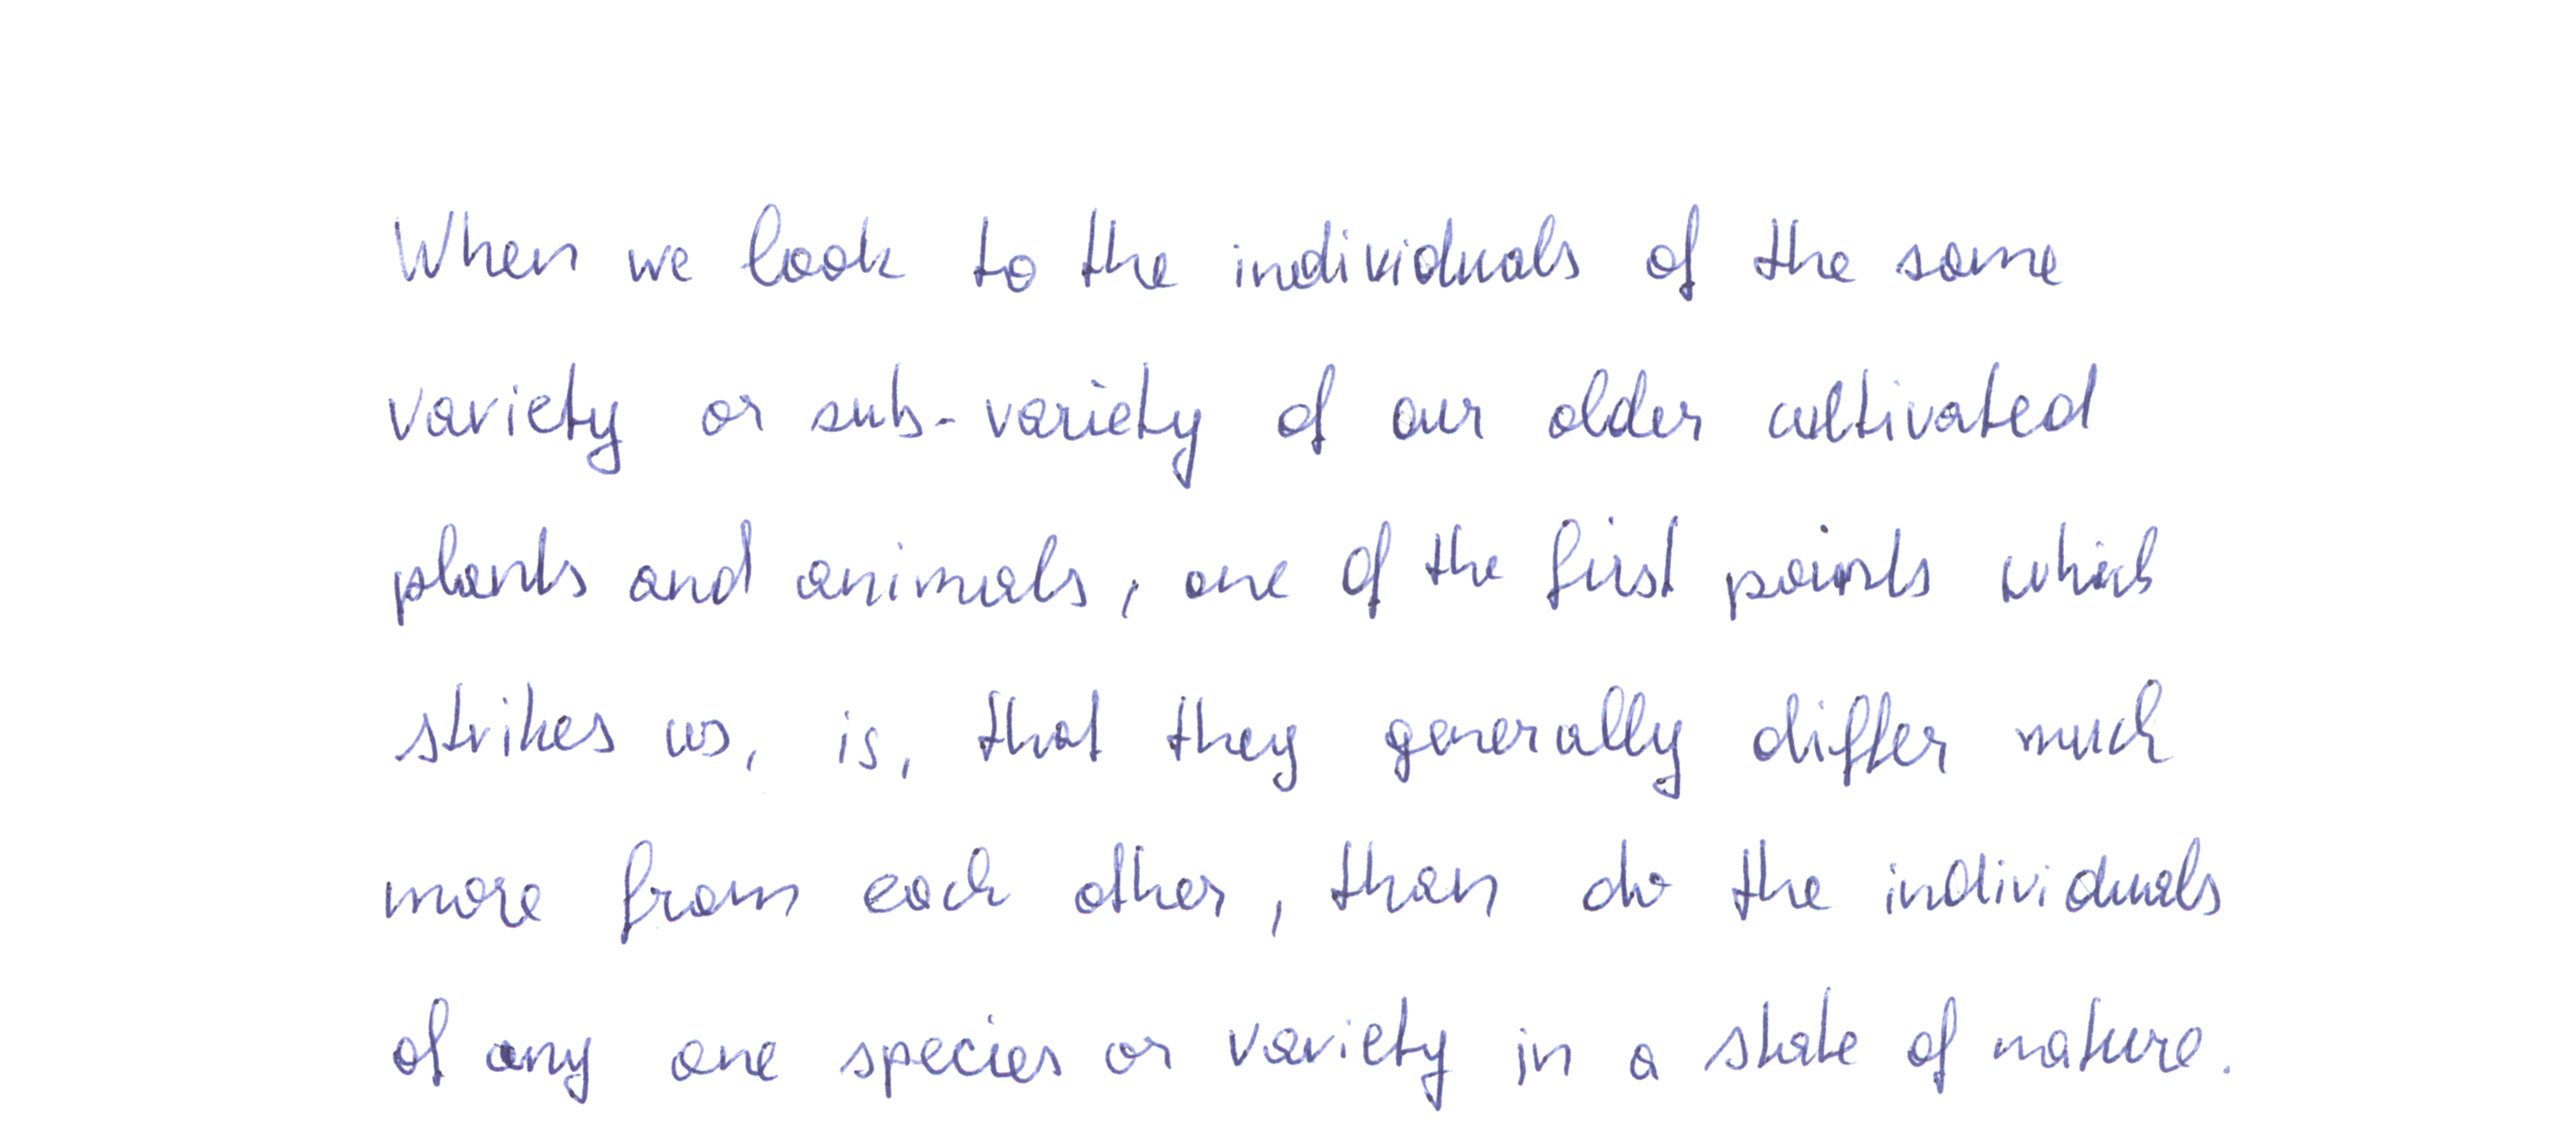 When we look to the individuals of the same
variety or sub-variety of our older cultivated
plants and animals, one of the first points which
strikes us, is, that they generally differ much
more from each other, than do the individuals
of any one species or variety in a state of nature.